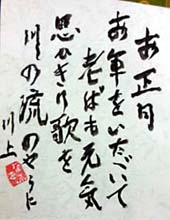 お正月
お年をいただいて
老ばも元気
思ひきり歌を
川の流のやうに
川上